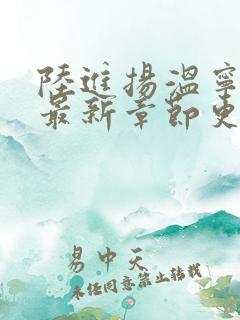 陸進揚溫寧
最新章節史
易中天
未经同意禁止转载